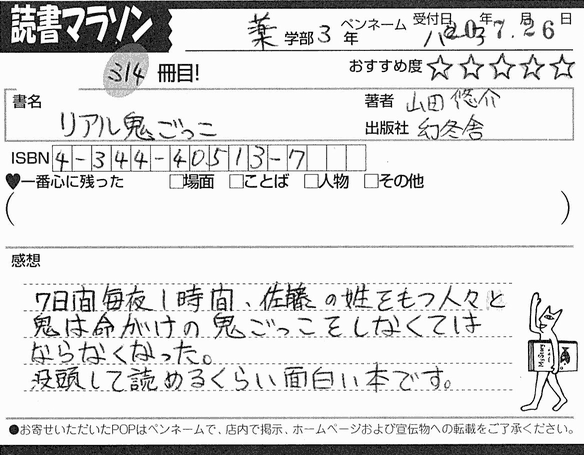 読書マラソン
薬 学部 3 年 ペンネーム 受付日 年 7月 26日
314 冊目! おすすめ度 ☆☆☆☆☆
書名 リアル鬼ごっこ
著者 山田悠介
出版社 幻冬舎
ISBN 4-344-40513-7
♥一番心に残った □場面 □ことば □人物 □その他
( )
感想
7日間毎夜1時間、佐藤の姓をもつ人々と
鬼は命がけの鬼ごっこをしなくては
ならなくなった。
没頭して読めるくらい面白い本です。
●お寄せいただいたPOPはペンネームで、店内で掲示、ホームページおよび宣伝物への転載をご了承ください。